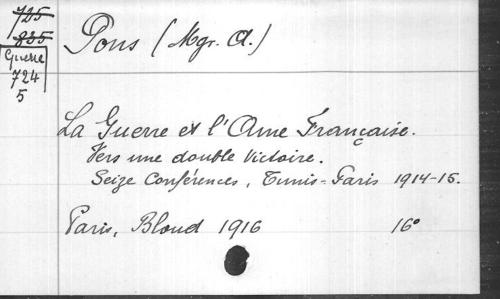 725
835
Guerre
724
5
Pons (Mgr. A.)
La Guerre et l'Ame Française.
Vers une double Victoire.
Seize Conférences, Tunis-Paris 1914-15.
Paris, Bloud 1916 16°